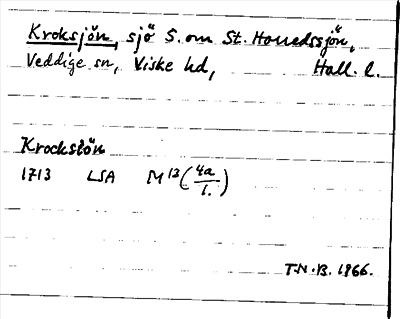 Kroksjön, sjö S. om St. Horredssjön,
Veddige sn, Viske hd, Hall. l.
Krocksiön
1713 LSA M 13 (4a/1.)
T.N.B. 1966.